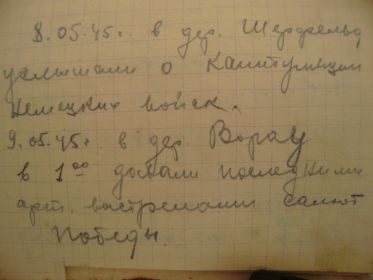 8.05.45г. в дер. Шерфельд
услышали о Капитуляции
Немецких войск.
9.05.45г в дер. Ворау
в 1⁰⁰ довали последними
арт. выстрелами салют
Победы.